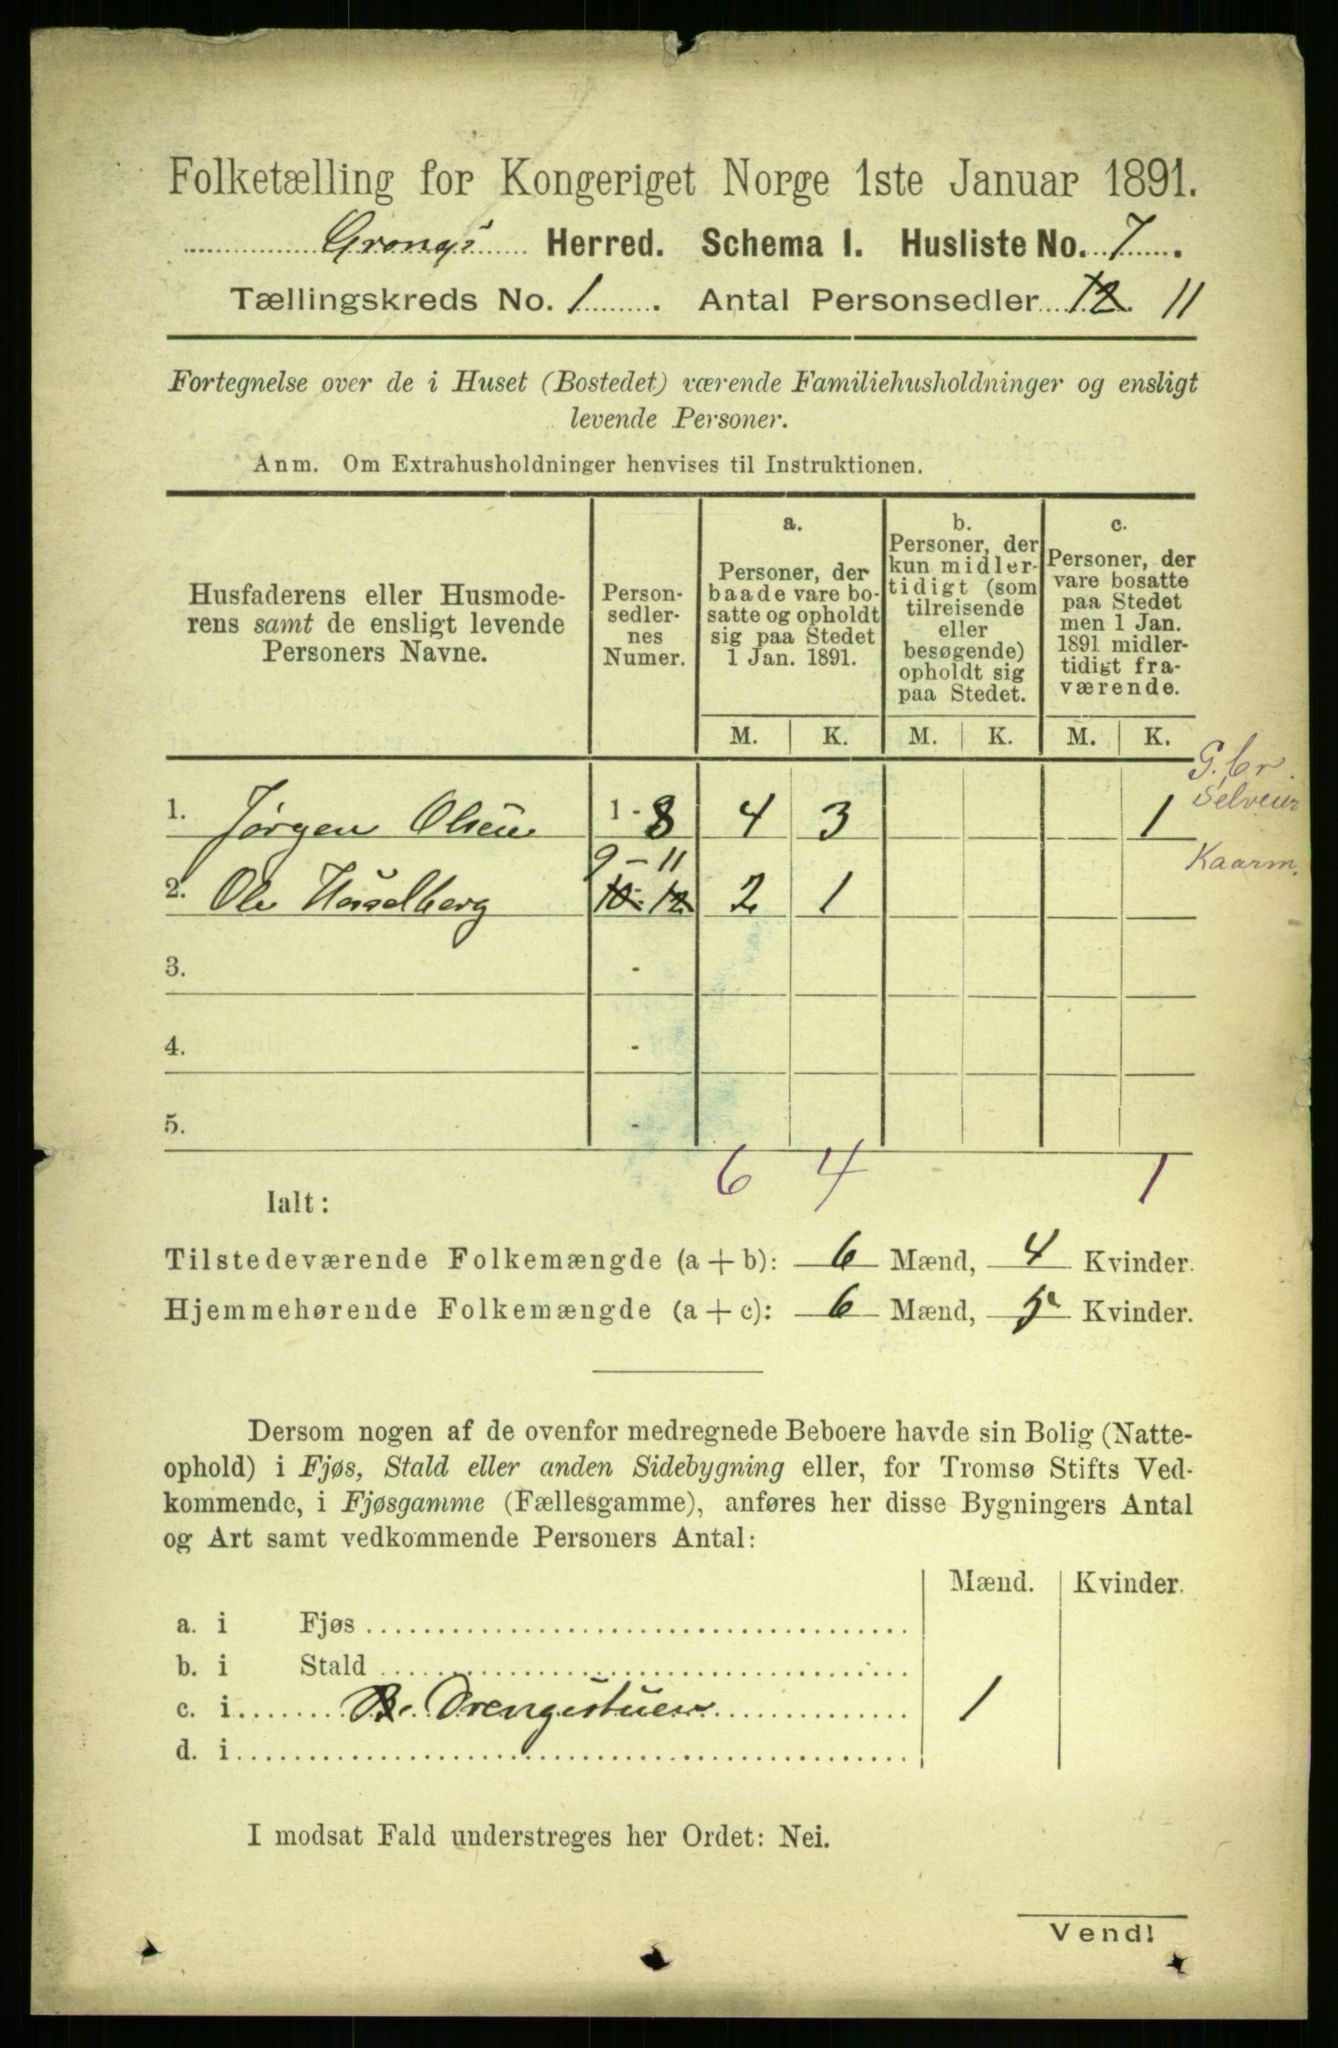 Folketælling for Kongeriget Norge 1ste Januar 1891.
Grongs Herred. Schema I. Husliste No. 7.
Tællingskreds No. 1. Antal Personsedler 12 11
Fortegnelse over de i Huset (Bostedet) værende Familiehusholdninger og ensligt
levende Personer.
Anm. Om Extrahusholdninger henvises til Instruktionen.
Husfaderens eller Husmode-
rens samt de ensligt levende
Personers Navne.
Person-
sedler-
nes
Numer.
a.
Personer, der
baade vare bo-
satte og opholdt
sig paa Stedet
1 Jan. 1891.
b.
Personer, der
kun midler-
tidigt (som
tilreisende
eller
besøgende)
opholdt sig
paa Stedet.
c.
Personer, der
vare bosatte
paa Stedet
men 1 Jan.
1891 midler-
tidigt fra-
værende.
M. K. M. K. M. K.
G. br.
Selveier
1. Jørgen Olsen 1 - 8 4 3 1
Kaarm.
9 - 11
2. Ole Hasselberg 10 - 12 2 1
3. -
4. -
5. -
6 4 1
Ialt:
Tilstedeværende Folkemængde (a + b): 6 Mænd, 4 Kvinder.
Hjemmehørende Folkemængde (a + c): 6 Mænd, 5 Kvinder.
Dersom nogen af de ovenfor medregnede Beboere havde sin Bolig (Natte-
ophold) i Fjøs, Stald eller anden Sidebygning eller, for Tromsø Stifts Ved-
kommende, i Fjøsgamme (Fællesgamme), anføres her disse Bygningers Antal
og Art samt vedkommende Personers Antal:
Mænd. Kvinder.
a. i Fjøs
b. i Stald
c. i Drengestuen 1
d. i
I modsat Fald understreges her Ordet: Nei.
Vend!